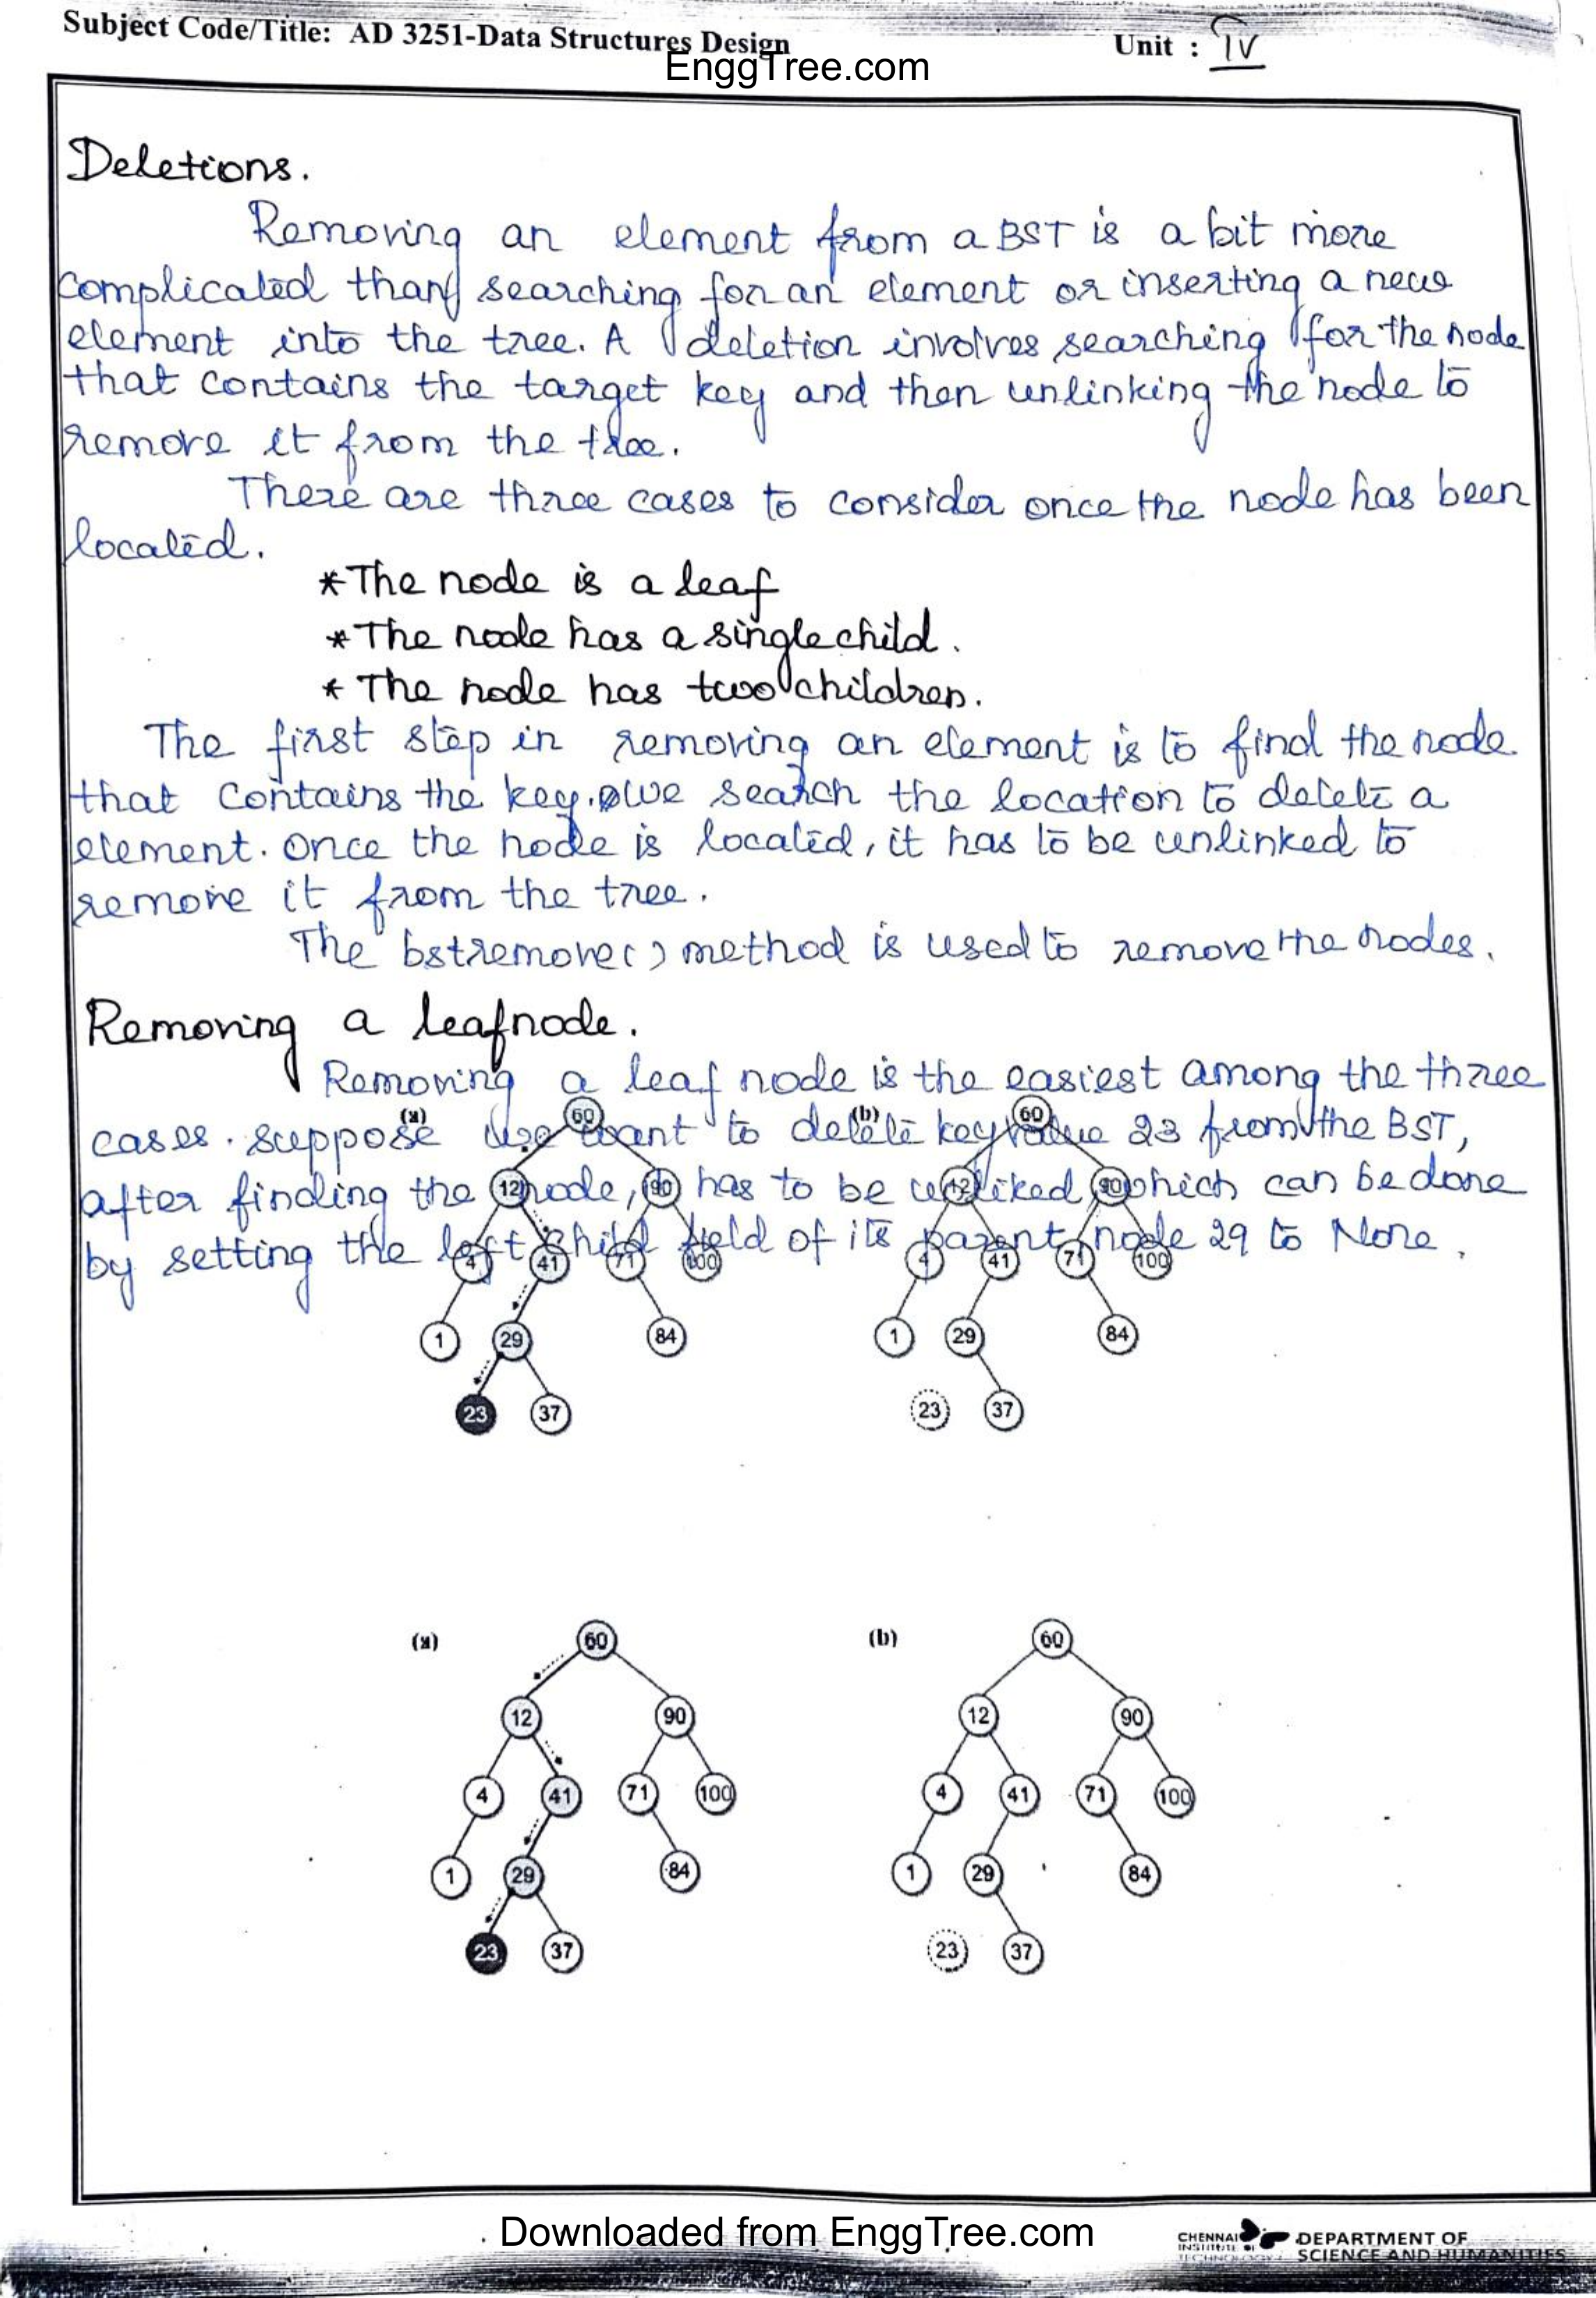 Subject Code/Title: AD 3251-Data Structures Design
Unit : IV
EnggTree.com
Deletions.
Removing an element from a BST is a bit more
complicated than searching for an element or inserting a new
element into the tree. A deletion involves searching for the node
that contains the target key and then unlinking the node to
remove it from the tree.
There are three cases to consider once the node has been
located.
*The node is a leaf
*The node has a single child.
* The node has two children.
The first step in removing an element is to find the node
that contains the key. we search the location to delete a
element. Once the node is located, it has to be unlinked to
remove it from the tree.
The bstremove() method is used to remove the nodes.
Removing a leafnode.
Removing a leaf node is the easiest among the three
cases. Suppose we want to delete key value 23 from the BST,
after finding the node, has to be unliked, which can be done
by setting the left child field of its parent node 29 to None.
(a) 60 (b) 60
12 90 12 90
4 41 71 100 4 41 71 100
1 29 84 1 29 84
23 37 23 37
(a) 60 (b) 60
12 90 12 90
4 41 71 100 4 41 71 100
1 29 84 1 29 84
23 37 23 37
Downloaded from EnggTree.com
CHENNAI
INSTITUTE OF
TECHNOLOGY
DEPARTMENT OF
SCIENCE AND HUMANITIES